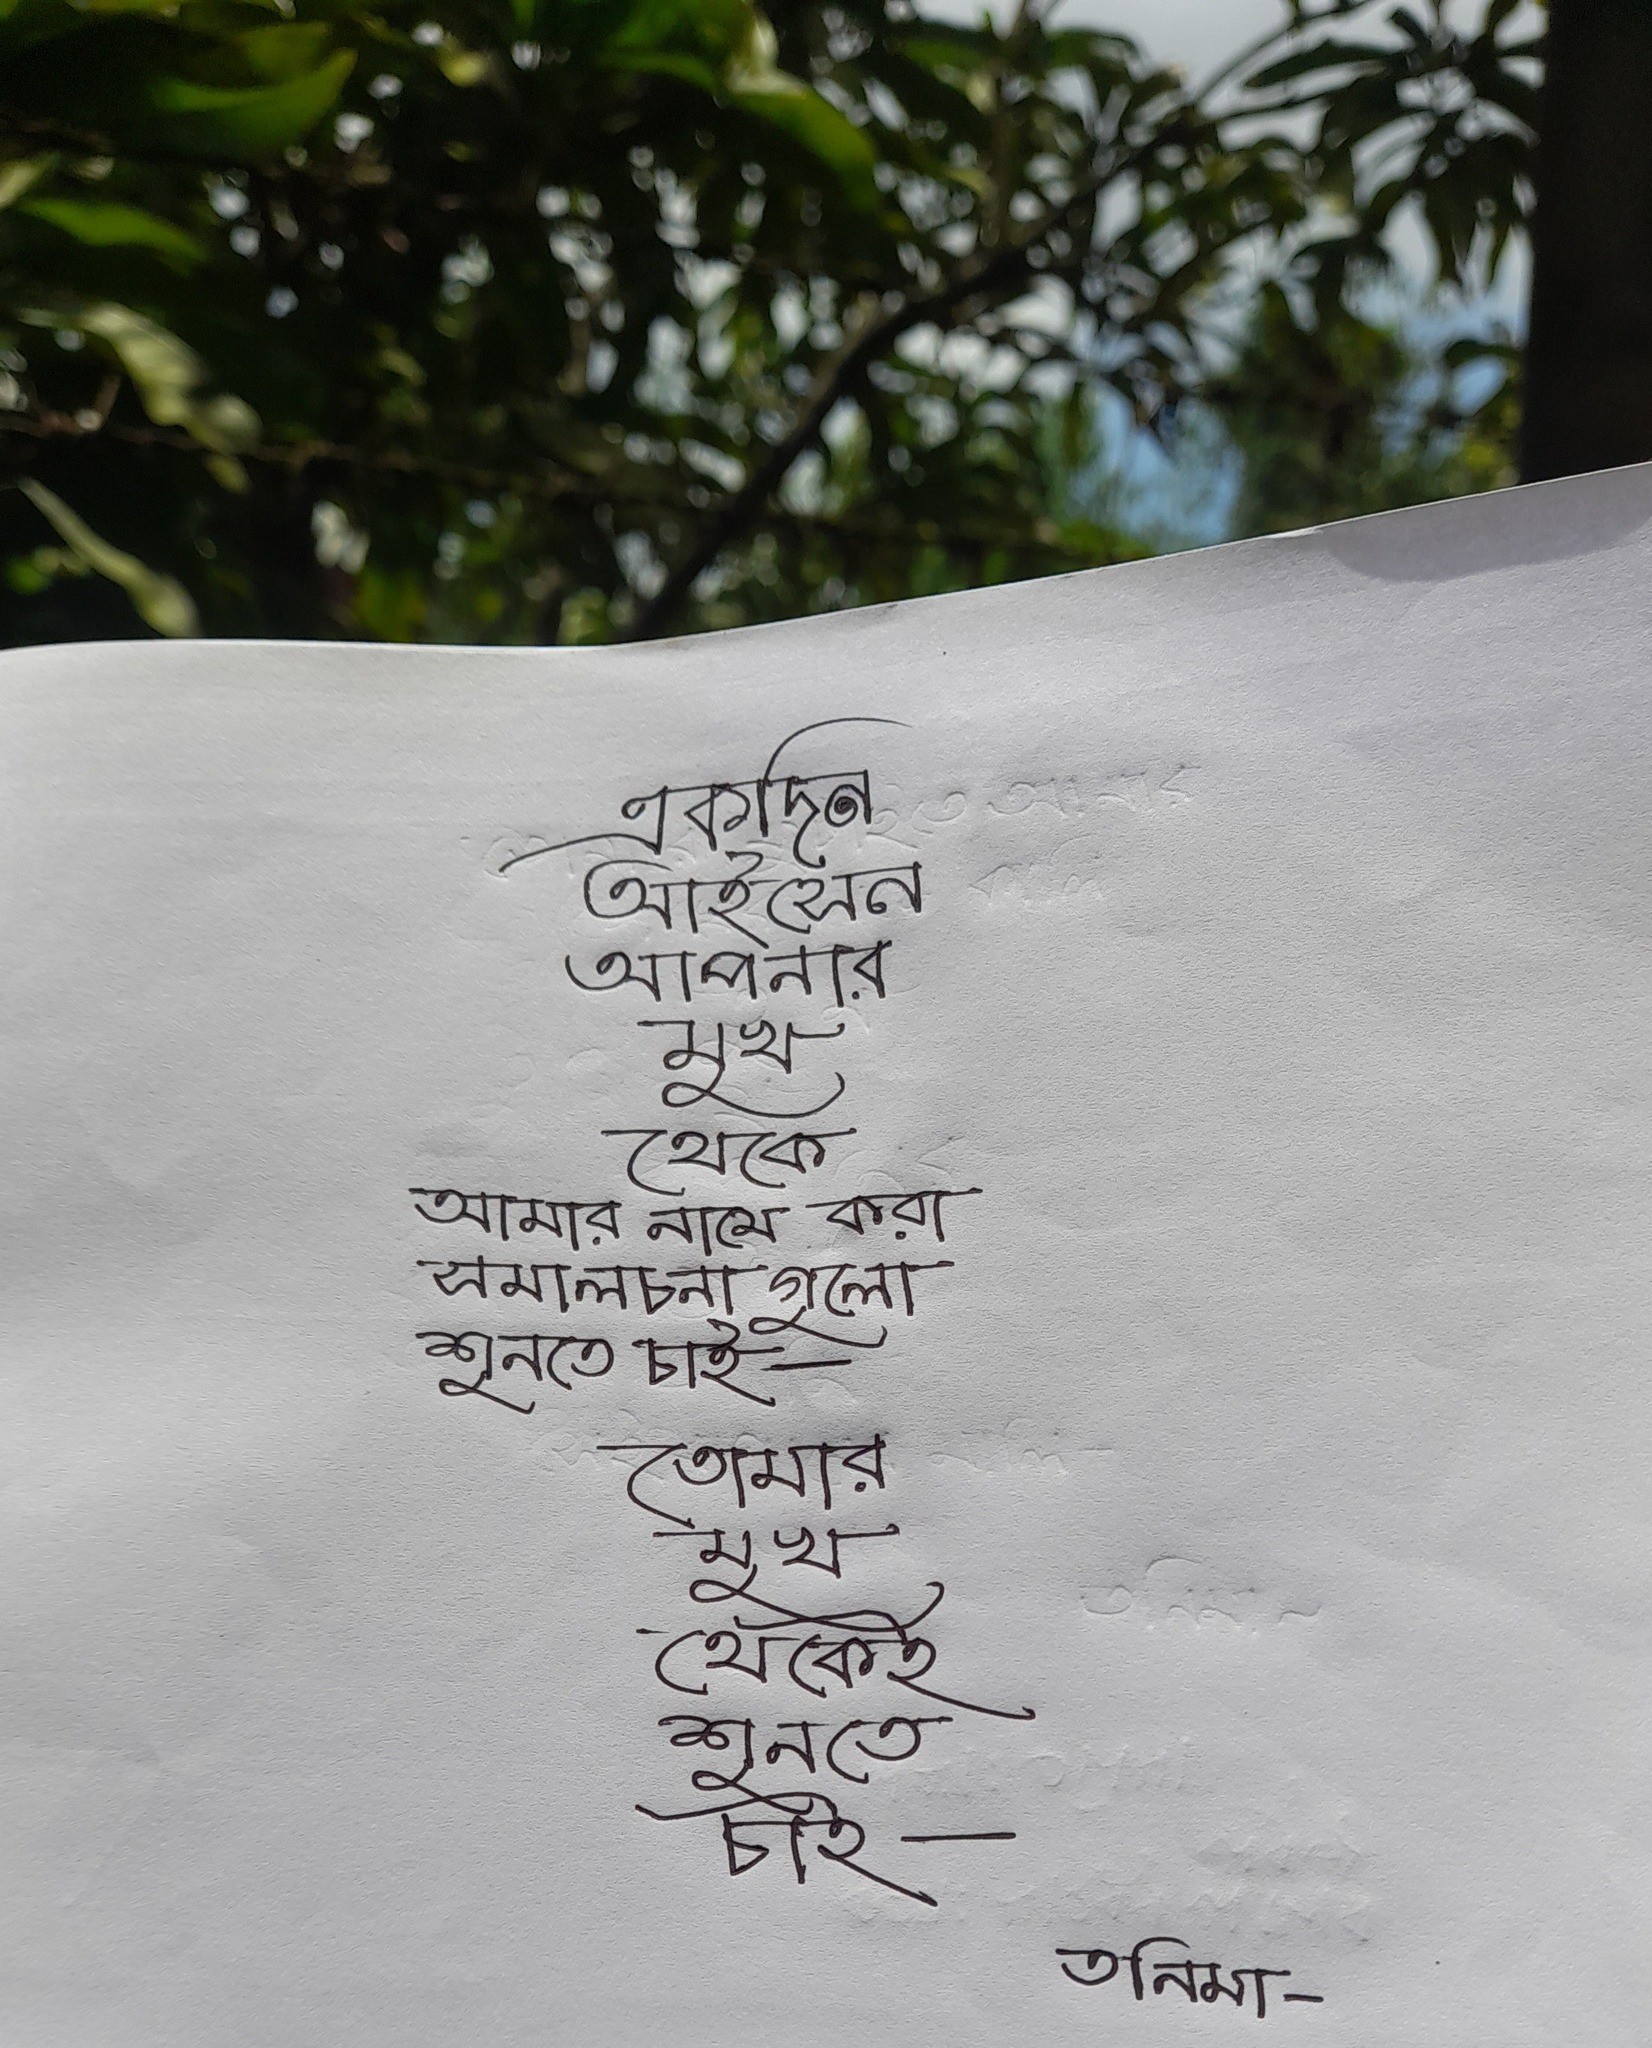 একদিন
আইসেন
আপনার
মুখ
থেকে
আমার নামে করা
সমালচনা গুলো
শুনতে চাই —
তোমার
মুখ
থেকেই
শুনতে
চাই —
তনিমা -